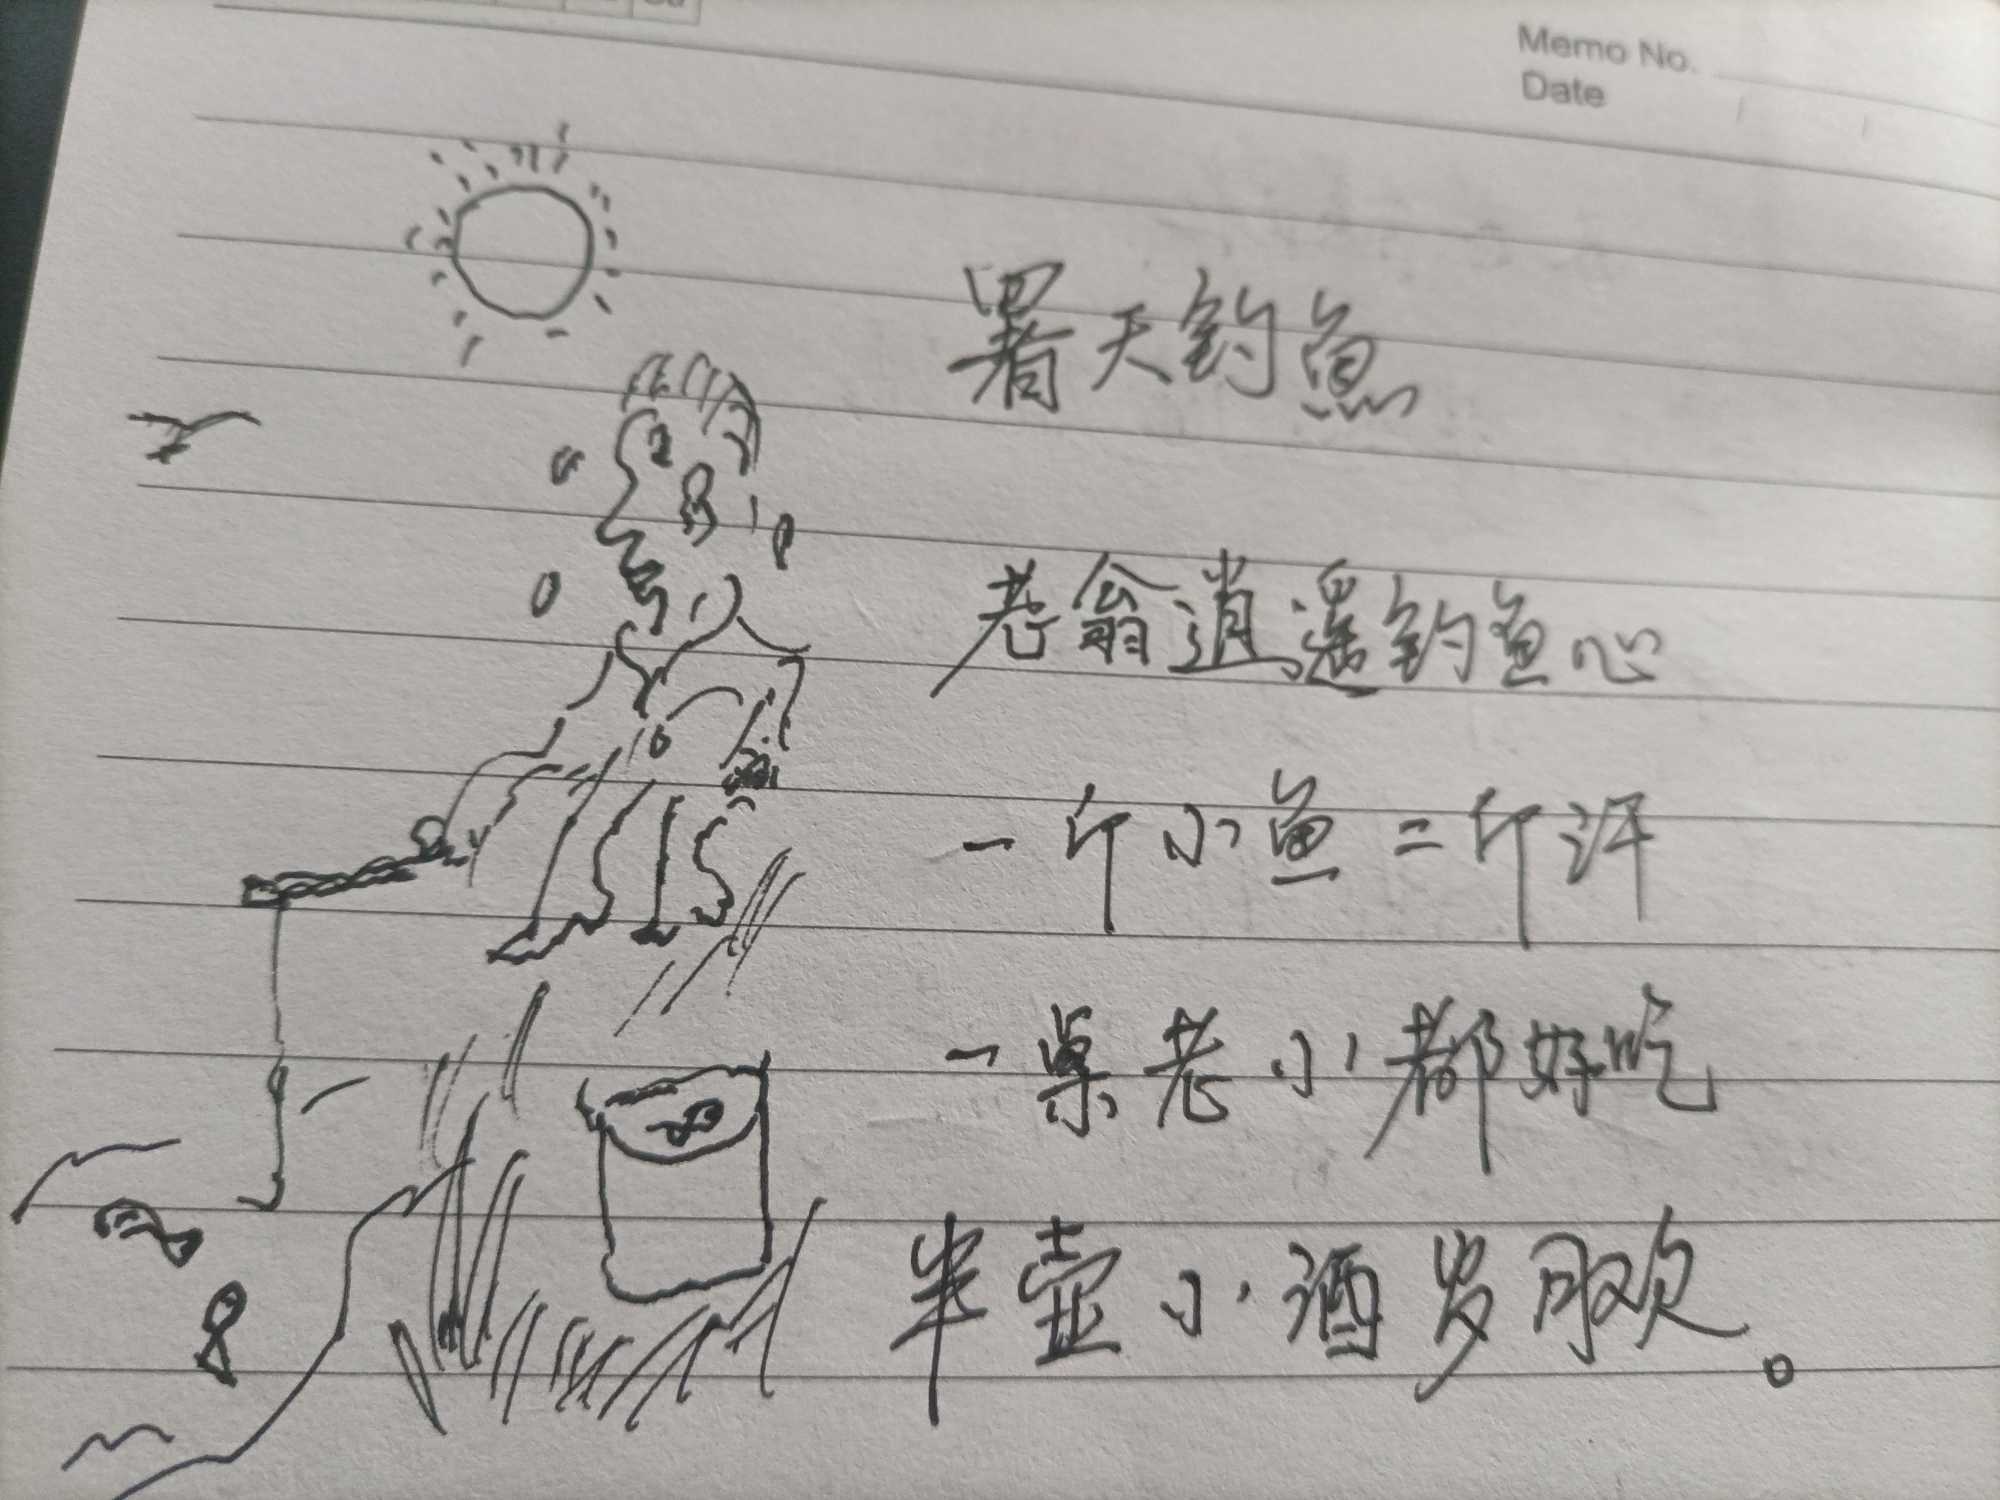 Memo No.
Date
署天钓魚
老翁逍遥钓鱼心
一斤小鱼二斤汗
一桌老小都好吃
半壶小酒岁月欢。